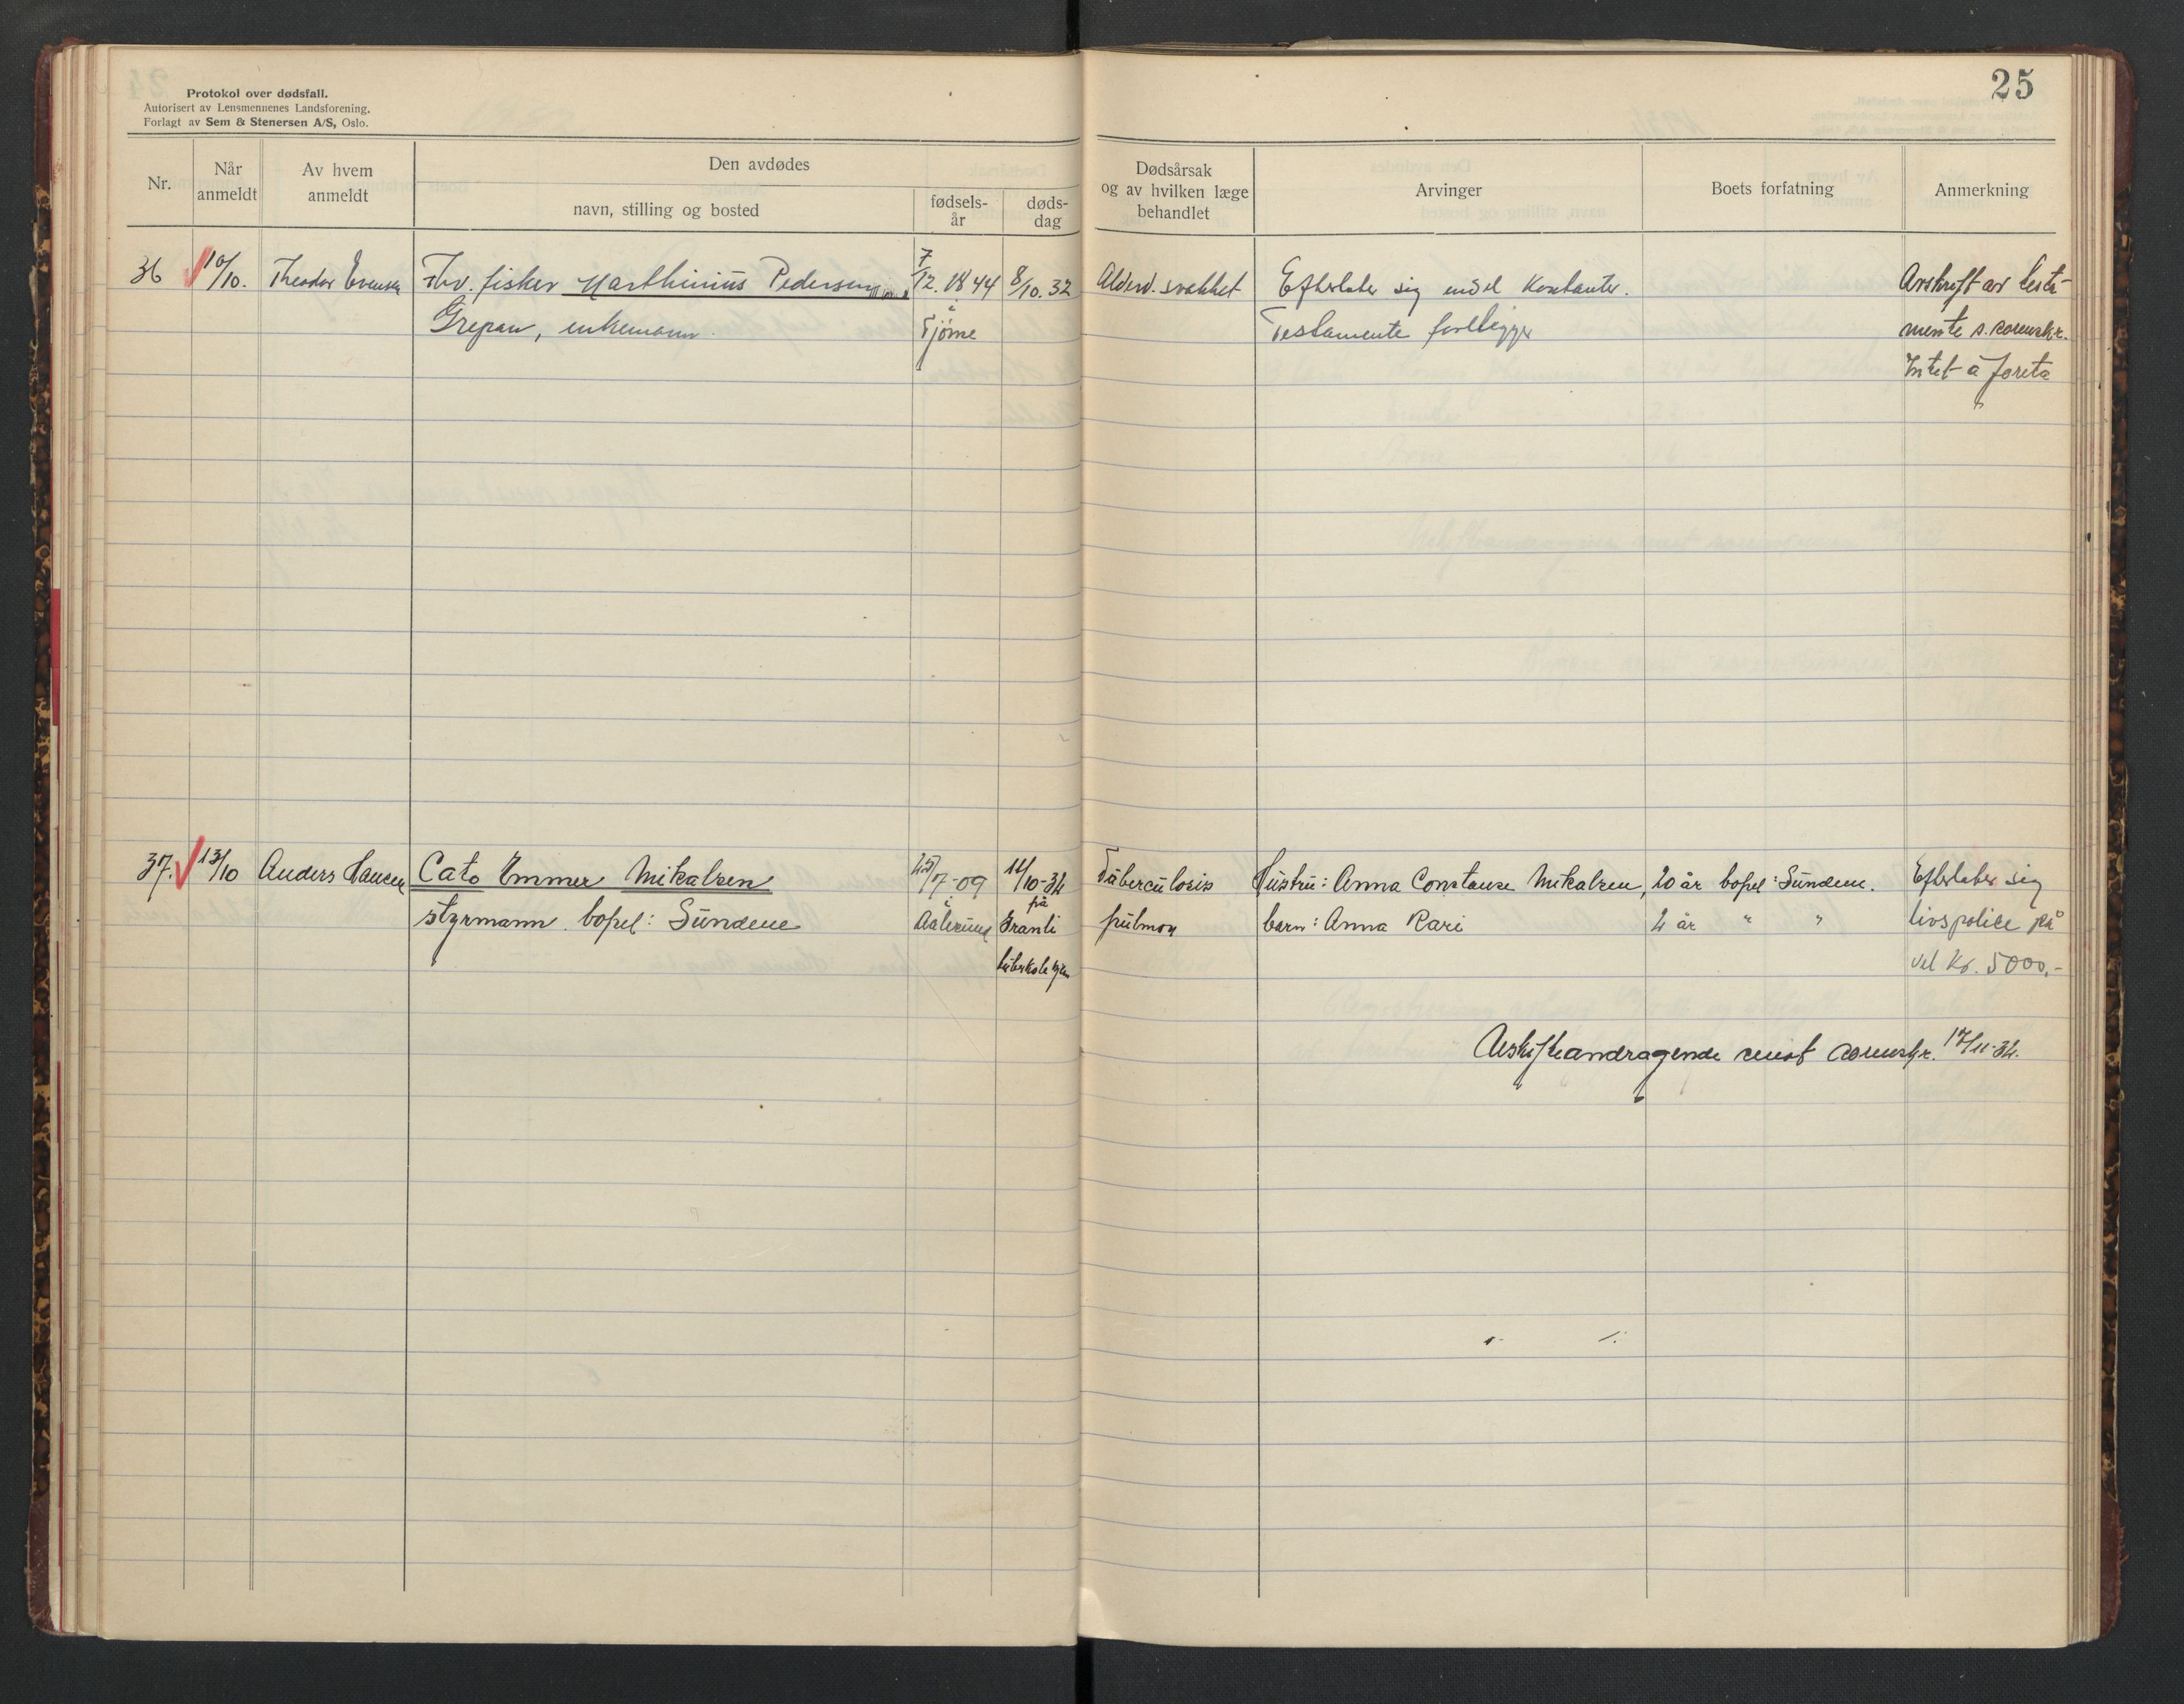 Protokol over dødsfall.
Autorisert av Lensmennenes Landsforening.
Forlagt av Sem & Stenersen A/S, Oslo.
25
Nr.
Når anmeldt
Av hvem anmeldt
Den avdødes
navn, stilling og bosted
fødsels-år
døds-dag
Dødsårsak og av hvilken læge behandlet
Arvinger
Boets forfatning
Anmerkning
36 10/10. Theodor Evensen Fhv. fisker Marthinius Pedersen 7/12. 1844 8/10. 32 Alderd. svakhet Efterlater sig endel kontanter. Avskrift av testa-
Grepan, enkemann. i Tjøme Testamente foreligger mente s. sorenskr.
Intet å foreta
37. 13/10 Anders Hansen Cato Emmer Mikalsen 25/7-09 11/10-34 Tuberculosis Hustru: Anna Constance Mikalsen, 20 år bopel: Sundene. Efterlater sig
styrmann. bopel: Sundene i Aalesund på Granli pulmon barn: Anna Kari 2 år " " livspolice på
tuberkulehjem vel kr. 5000,-
Uskifteandragende sendt sorenskr. 17/11-34.